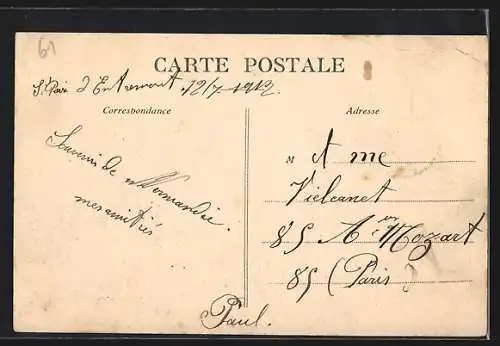 61
CARTE POSTALE
S. Pair d'Entremont. 12/7 1912
Correspondance
Adresse
Souvenir de
Normandie.
mes amitiés
Paul.
M et Mme
Vielcanet
85 Av. Mozart
85 (Paris)